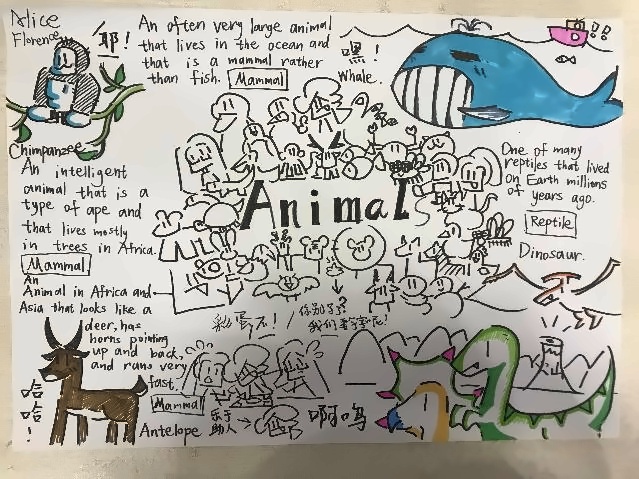 Alice
Florence
耶！
An often very large animal
that lives in the ocean and
that is a mammal rather
than fish. Mammal
嘿！
Whale.
Chimpanzee
An intelligent
animal that is a
type of ape and
that lives mostly
in trees in Africa.
Mammal
Animals
One of many
reptiles that lived
on Earth millions
of years ago.
Reptile
Dinosaur.
An
Animal in Africa and
Asia that looks like a
deer, has
horns pointing
up and back,
and runs very
fast.
Mammal
Antelope
哈
哈
！
彩蛋不！
我们
乐于
助人
啊呜